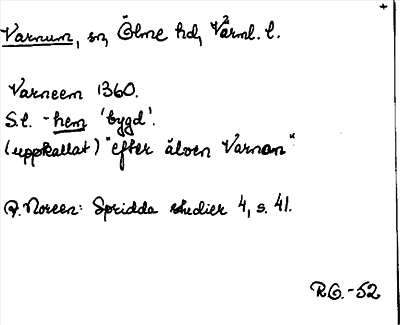 Varnum, sn, Ölme hd, Värml. l.
Varneem 1360.
S.l. -hem 'bygd'.
(uppkallat) "efter älven Varnan"
A. Noreen: Spridda studier 4, s. 41.
R.G. -52